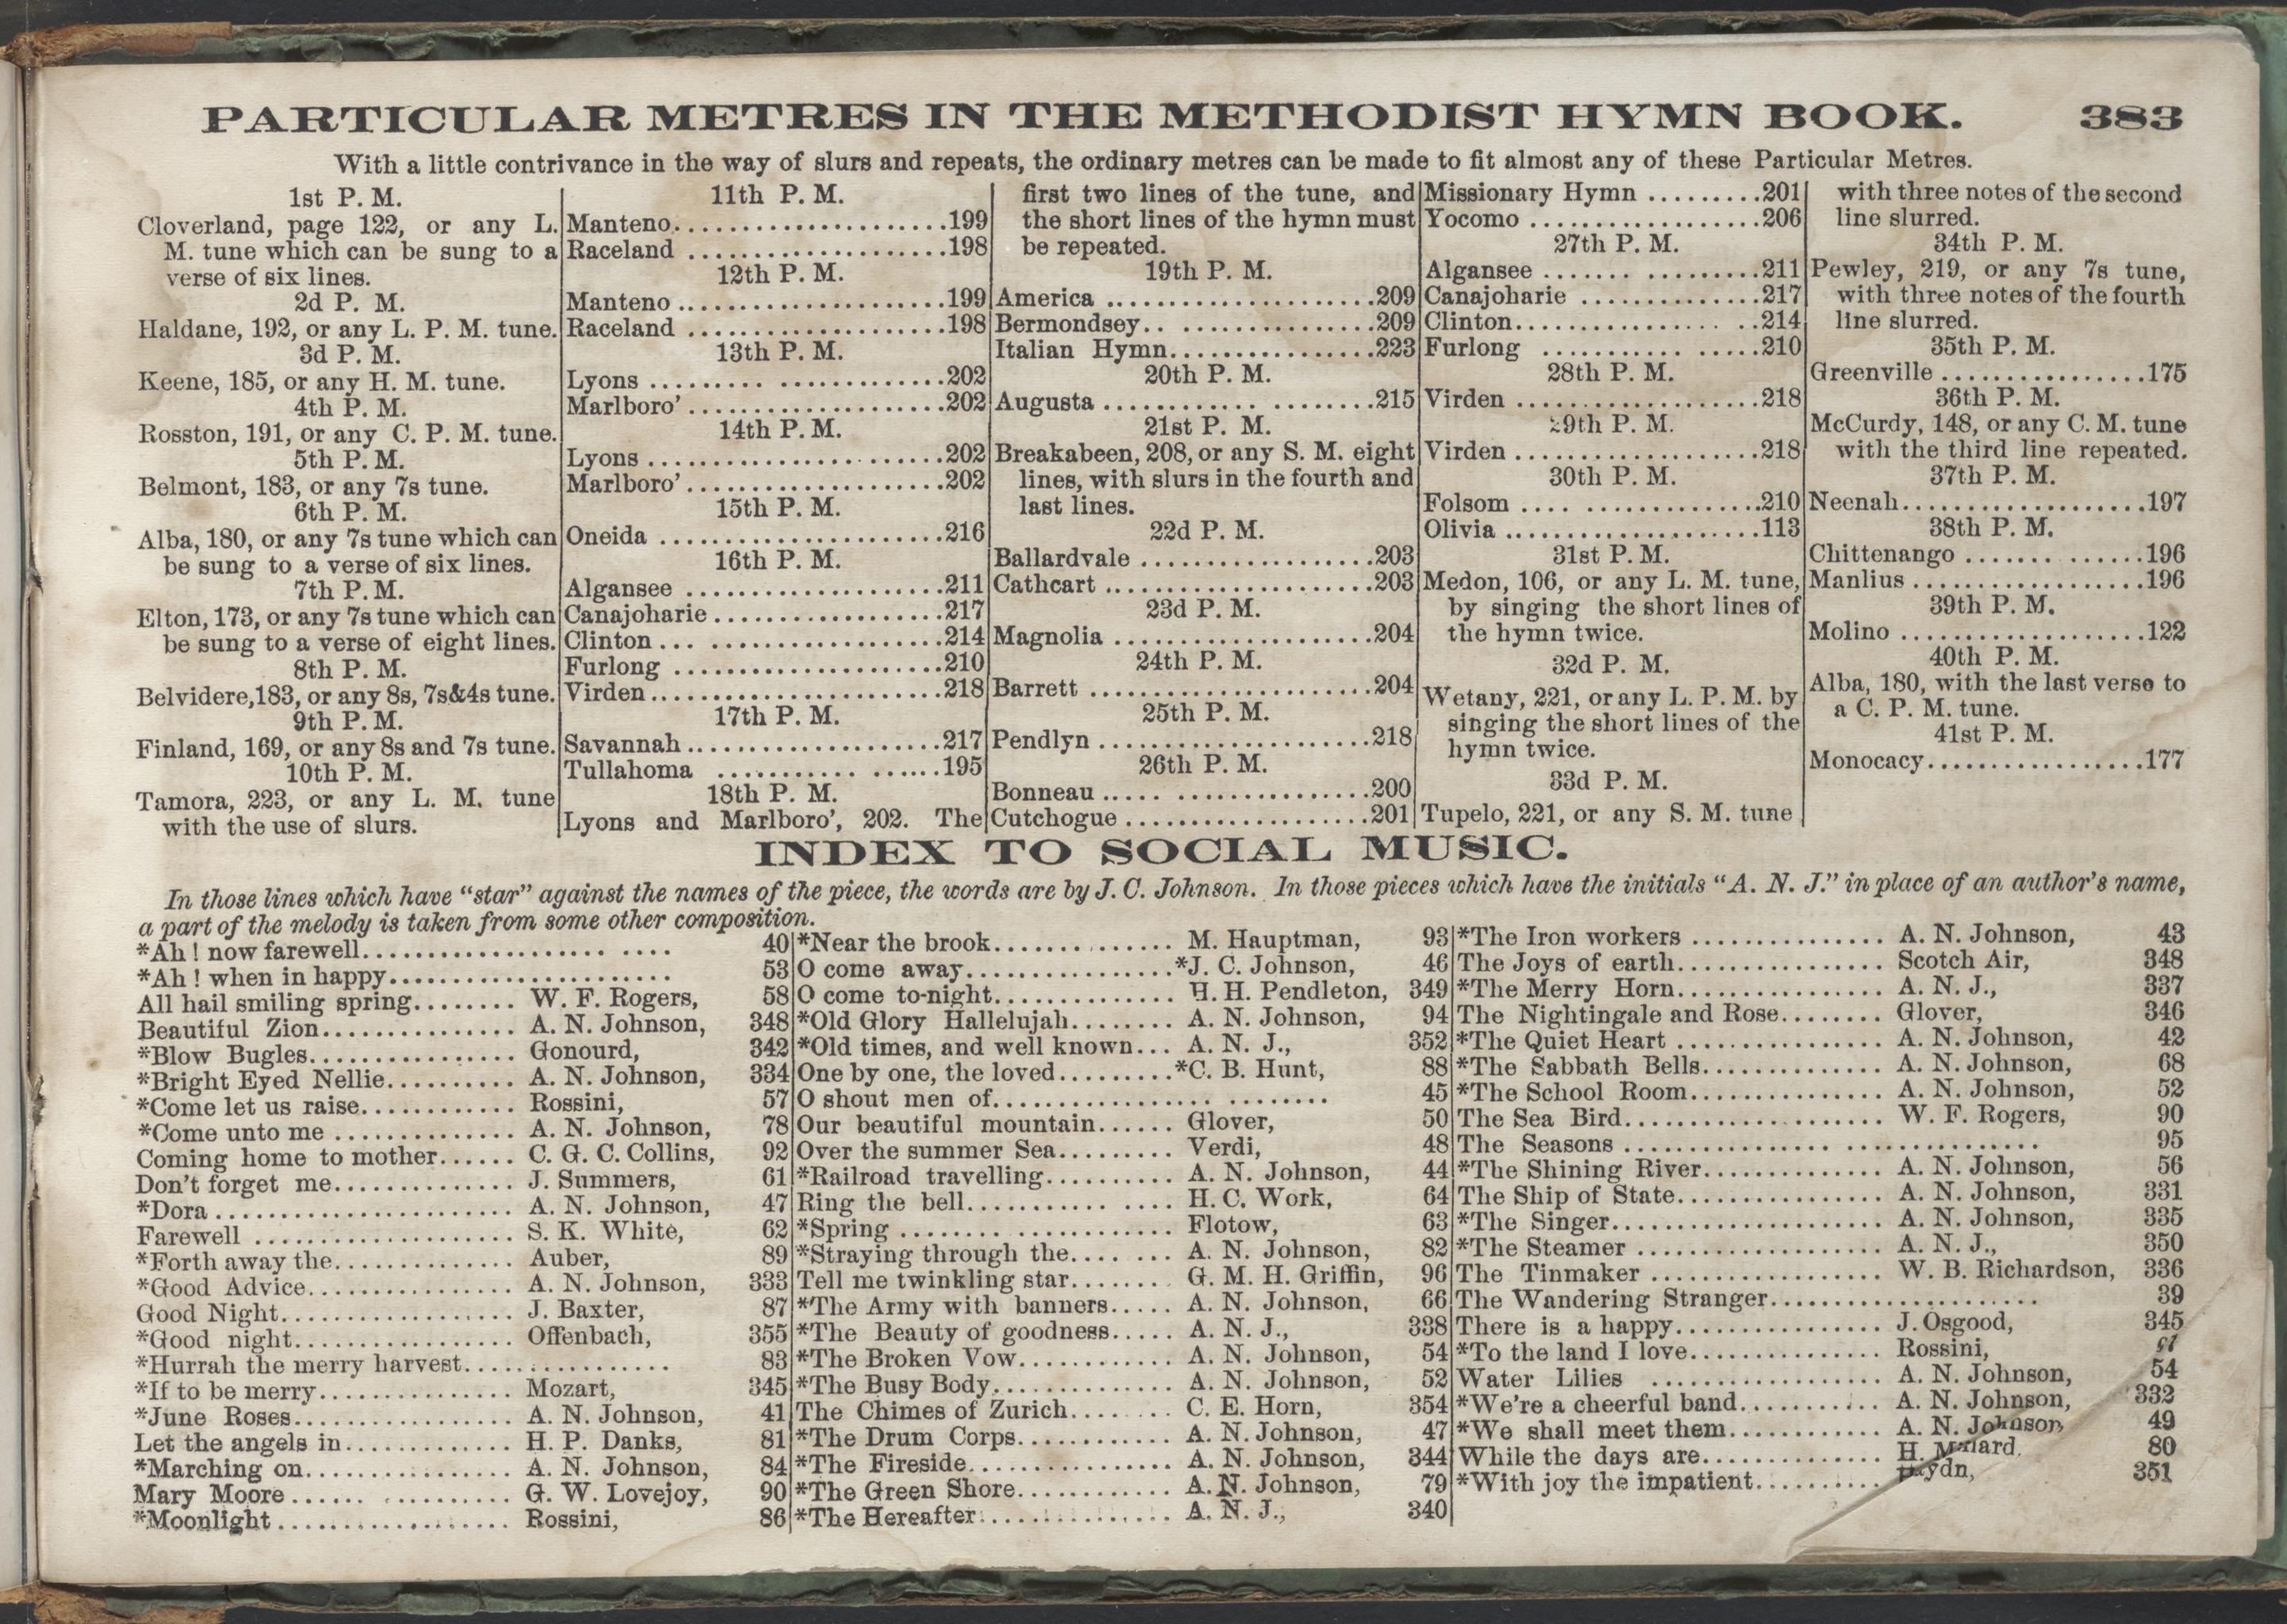 PARTICULAR METRES IN THE METHODIST HYMN BOOK. 383
With a little contrivance in the way of slurs and repeats, the ordinary metres can be made to fit almost any of these Particular Metres.
1st P. M.
Cloverland, page 122, or any L.
M. tune which can be sung to a
verse of six lines.
2d P. M.
Haldane, 192, or any L. P. M. tune.
3d P. M.
Keene, 185, or any H. M. tune.
4th P. M.
Rosston, 191, or any C. P. M. tune.
5th P. M.
Belmont, 183, or any 7s tune.
6th P. M.
Alba, 180, or any 7s tune which can
be sung to a verse of six lines.
7th P. M.
Elton, 173, or any 7s tune which can
be sung to a verse of eight lines.
8th P. M.
Belvidere, 183, or any 8s, 7s&4s tune.
9th P. M.
Finland, 169, or any 8s and 7s tune.
10th P. M.
Tamora, 223, or any L. M. tune
with the use of slurs.
11th P. M.
Manteno.....................199
Raceland ....................198
12th P. M.
Manteno .....................199
Raceland ....................198
13th P. M.
Lyons ......... .............202
Marlboro' ....................202
14th P. M.
Lyons .......................202
Marlboro' ....................202
15th P. M.
Oneida ......................216
16th P. M.
Algansee ....................211
Canajoharie ..................217
Clinton ... ..................214
Furlong .....................210
Virden ......................218
17th P. M.
Savannah ....................217
Tullahoma ........... ......195
18th P. M.
Lyons and Marlboro', 202. The
first two lines of the tune, and
the short lines of the hymn must
be repeated.
19th P. M.
America .....................209
Bermondsey.. ...............209
Italian Hymn................223
20th P. M.
Augusta ............ ........215
21st P. M.
Breakabeen, 208, or any S. M. eight
lines, with slurs in the fourth and
last lines.
22d P. M.
Ballardvale ..................203
Cathcart .....................203
23d P. M.
Magnolia ....................204
24th P. M.
Barrett ......................204
25th P. M.
Pendlyn .....................218
26th P. M.
Bonneau ..... ...............200
Cutchogue ...................201
Missionary Hymn .........201
Yocomo ..................206
27th P. M.
Algansee ....... .........211
Canajoharie ..............217
Clinton................. ..214
Furlong ........... .....210
28th P. M.
Virden ...................218
29th P. M.
Virden ...................218
30th P. M.
Folsom .... ..............210
Olivia ....................113
31st P. M.
Medon, 106, or any L. M. tune,
by singing the short lines of
the hymn twice.
32d P. M.
Wetany, 221, or any L. P. M. by
singing the short lines of the
hymn twice.
33d P. M.
Tupelo, 221, or any S. M. tune
with three notes of the second
line slurred.
34th P. M.
Pewley, 219, or any 7s tune,
with three notes of the fourth
line slurred.
35th P. M.
Greenville ................175
36th P. M.
McCurdy, 148, or any C. M. tune
with the third line repeated.
37th P. M.
Neenah...................197
38th P. M.
Chittenango ..............196
Manlius ..................196
39th P. M.
Molino ...................122
40th P. M.
Alba, 180, with the last verse to
a C. P. M. tune.
41st P. M.
Monocacy.................177
INDEX TO SOCIAL MUSIC.
In those lines which have "star" against the names of the piece, the words are by J. C. Johnson. In those pieces which have the initials "A. N. J." in place of an author's name,
a part of the melody is taken from some other composition.
*Ah ! now farewell................... .... 40
*Ah ! when in happy...................... 53
All hail smiling spring........ W. F. Rogers, 58
Beautiful Zion............... A. N. Johnson, 348
*Blow Bugles................ Gonourd, 342
*Bright Eyed Nellie.......... A. N. Johnson, 334
*Come let us raise............ Rossini, 57
*Come unto me .............. A. N. Johnson, 78
Coming home to mother...... C. G. C. Collins, 92
Don't forget me.............. J. Summers, 61
*Dora ....................... A. N. Johnson, 47
Farewell .................... S. K. White, 62
*Forth away the.............. Auber, 89
*Good Advice................ A. N. Johnson, 333
Good Night.................. J. Baxter, 87
*Good night................. Offenbach, 355
*Hurrah the merry harvest................ 83
*If to be merry............... Mozart, 345
*June Roses................. A. N. Johnson, 41
Let the angels in............. H. P. Danks, 81
*Marching on................ A. N. Johnson, 84
Mary Moore ...... .......... G. W. Lovejoy, 90
*Moonlight .................. Rossini, 86
*Near the brook.............. M. Hauptman, 93
O come away................*J. C. Johnson, 46
O come to-night.............. H. H. Pendleton, 349
*Old Glory Hallelujah........ A. N. Johnson, 94
*Old times, and well known... A. N. J., 352
One by one, the loved.........*C. B. Hunt, 88
O shout men of................. ........ 45
Our beautiful mountain...... Glover, 50
Over the summer Sea......... Verdi, 48
*Railroad travelling.......... A. N. Johnson, 44
Ring the bell........... .... H. C. Work, 64
*Spring ........ ............ Flotow, 63
*Straying through the.... ... A. N. Johnson, 82
Tell me twinkling star........ G. M. H. Griffin, 96
*The Army with banners..... A. N. Johnson, 66
*The Beauty of goodness..... A. N. J., 338
*The Broken Vow............ A. N. Johnson, 54
*The Busy Body.............. A. N. Johnson, 52
The Chimes of Zurich........ C. E. Horn, 354
*The Drum Corps............ A. N. Johnson, 47
*The Fireside................ A. N. Johnson, 344
*The Green Shore............ A. N. Johnson, 79
*The Hereafter............... A. N. J., 340
*The Iron workers ............... A. N. Johnson, 43
The Joys of earth................ Scotch Air, 348
*The Merry Horn................ A. N. J., 337
The Nightingale and Rose........ Glover, 346
*The Quiet Heart ................ A. N. Johnson, 42
*The Sabbath Bells.............. A. N. Johnson, 68
*The School Room............... A. N. Johnson, 52
The Sea Bird.................... W. F. Rogers, 90
The Seasons ................ ............... 95
*The Shining River.............. A. N. Johnson, 56
The Ship of State................ A. N. Johnson, 331
*The Singer..................... A. N. Johnson, 335
*The Steamer ................... A. N. J., 350
The Tinmaker .................. W. B. Richardson, 336
The Wandering Stranger..................... 39
There is a happy................ J. Osgood, 345
*To the land I love............... Rossini,
Water Lilies .................. A. N. Johnson, 54
*We're a cheerful band........... A. N. Johnson, 332
*We shall meet them............ A. N. Johnson, 49
While the days are............... H. Millard, 80
*With joy the impatient.......... Haydn, 351